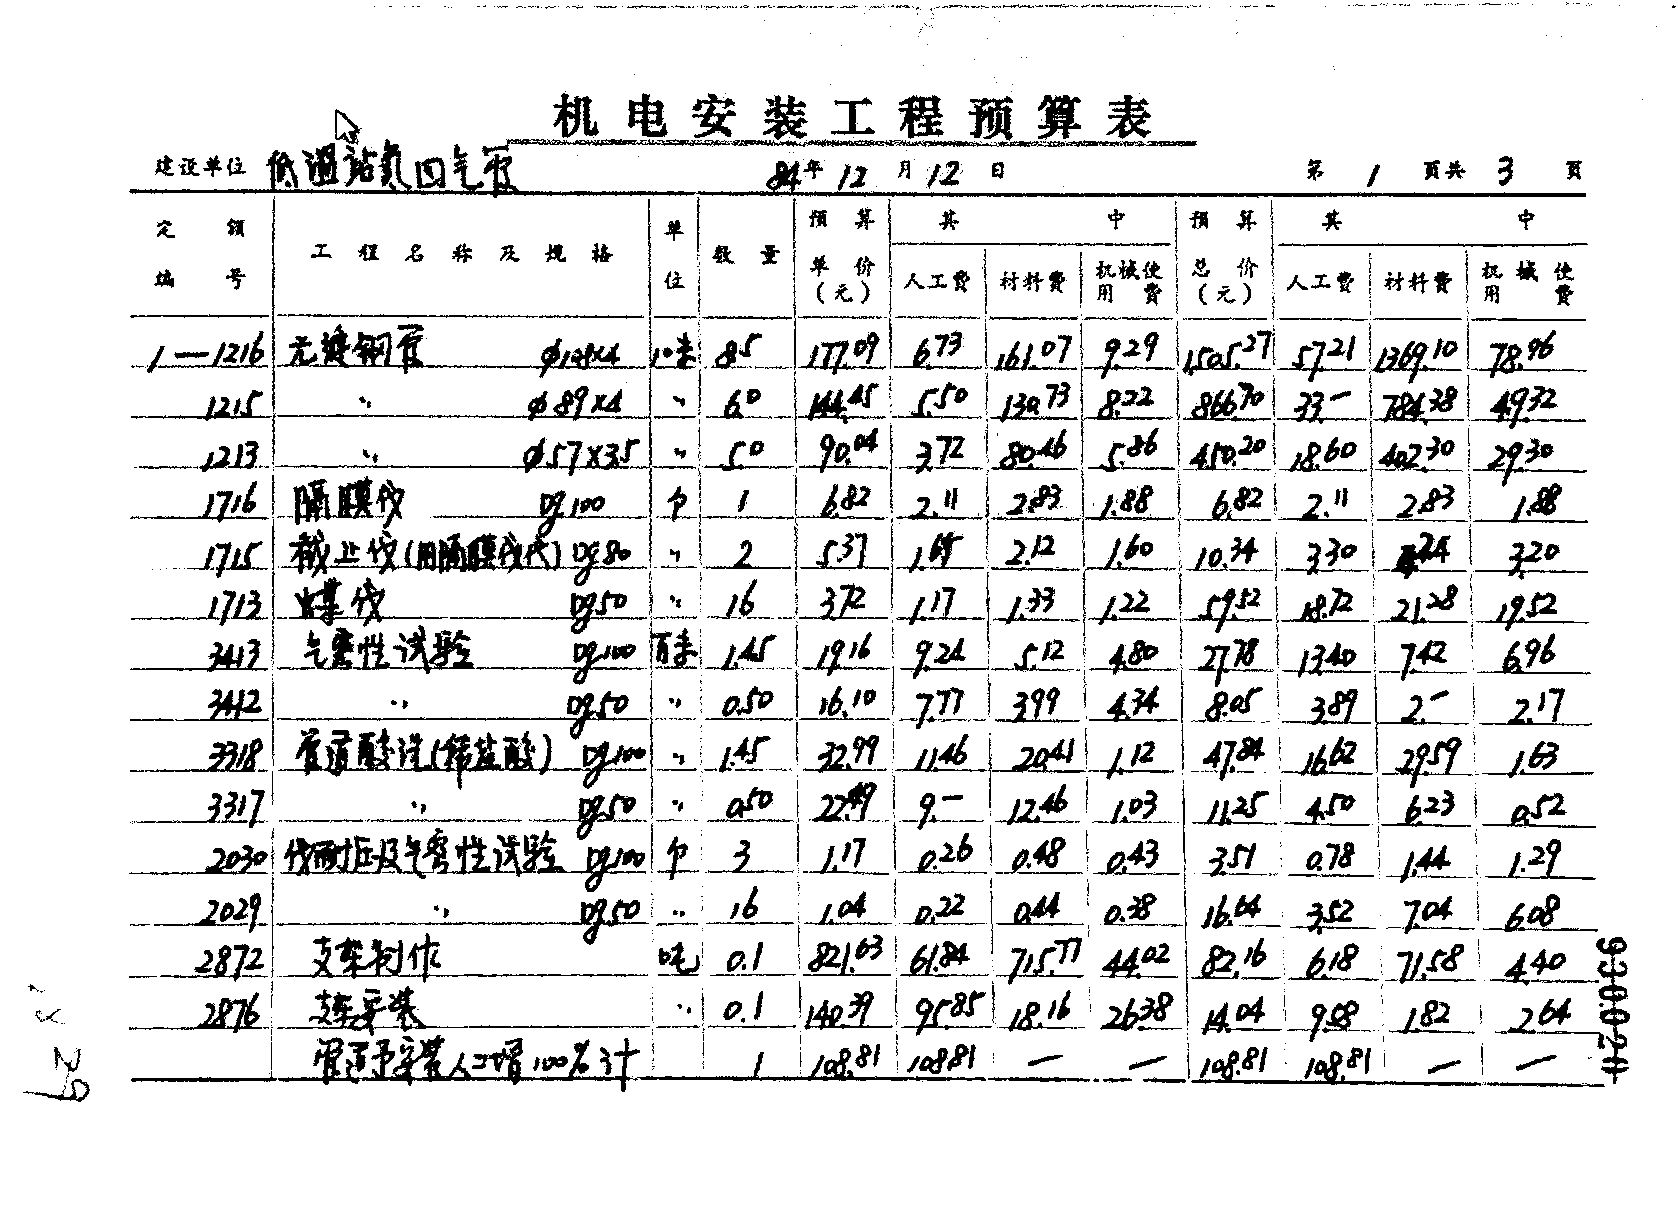 机电安装工程预算表
建设单位 低温站氮四气管 84年12月12日 第1页共3页
定额编号 工程名称及规格 单位 数量 预算单价(元) 其中 人工费 材料费 机械使用费 预算总价(元) 其中 人工费 材料费 机械使用费
1—1216 无缝钢管 φ108×4 10米 8.5 177.09 6.73 161.07 9.29 1505.27 57.21 1369.10 78.96
1215 〃 φ89×4 〃 6.0 144.45 5.50 130.73 8.22 866.70 33— 784.38 49.32
1213 〃 φ57×3.5 〃 5.0 90.04 3.72 80.46 5.86 450.20 18.60 402.30 29.30
1716 隔膜伐 Dg100 个 1 6.82 2.11 2.83 1.88 6.82 2.11 2.83 1.88
1715 截止伐(用隔膜伐代) Dg80 〃 2 5.37 1.65 2.12 1.60 10.34 3.30 4.24 3.20
1713 伐 Dg50 〃 16 3.72 1.17 1.33 1.22 59.52 18.72 21.28 19.52
3413 气密性试验 Dg100 百米 1.45 19.16 9.24 5.12 4.80 27.78 13.40 7.42 6.96
3412 〃 Dg50 〃 0.50 16.10 7.77 3.99 4.34 8.05 3.89 2.— 2.17
3318 管道酸洗(稀盐酸) Dg100 〃 1.45 32.99 11.46 20.41 1.12 47.84 16.62 29.59 1.63
3317 〃 Dg50 〃 0.50 22.49 9.— 12.46 1.03 11.25 4.50 6.23 0.52
2030 伐耐压及气密性试验 Dg100 个 3 1.17 0.26 0.48 0.43 3.51 0.78 1.44 1.29
2029 〃 Dg50 〃 16 1.04 0.22 0.44 0.38 16.64 3.52 7.04 6.08
2872 支架制作 吨 0.1 821.63 61.84 715.77 44.02 82.16 6.18 71.58 4.40
2876 支架安装 〃 0.1 140.39 95.85 18.16 26.38 14.04 9.58 1.82 2.64
管道予安装人工增100%计 1 108.81 108.81 — — 108.81 108.81 — —